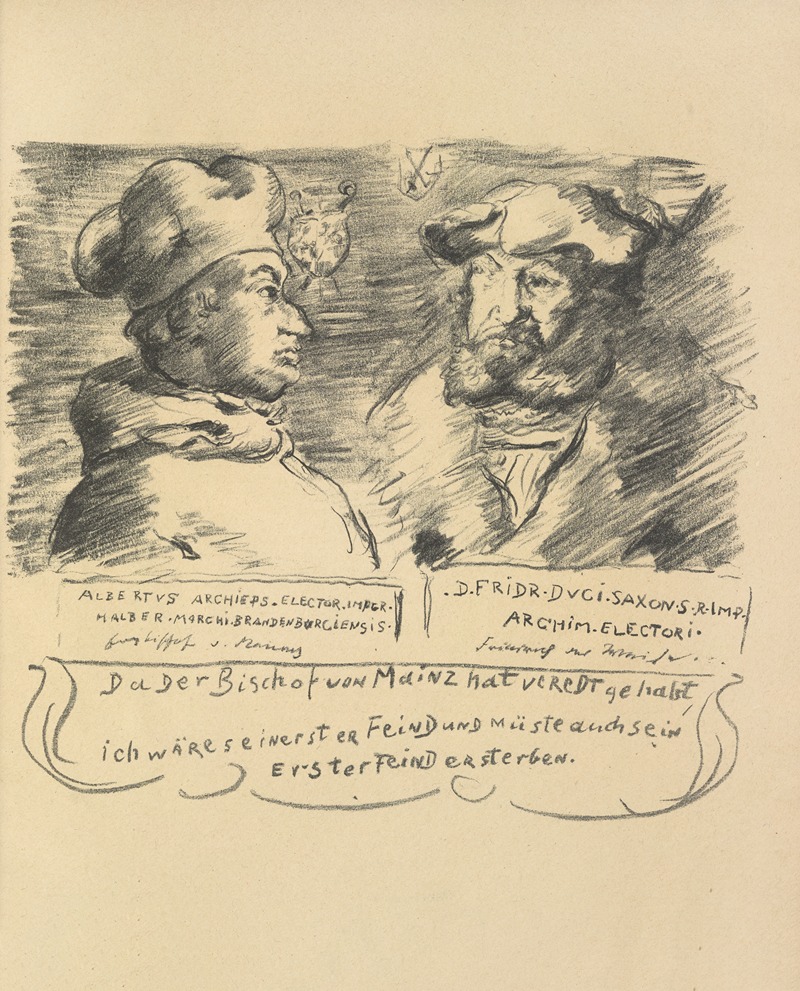 ALBERTVS ARCHIEPS. ELECTOR. IMPER.
HALBER. MARCHI. BRANDENBURGIENSIS.
Erzbischof v. Mainz
.D. FRIDR. DVCI. SAXON. S. R. IMP.
ARCHIM. ELECTORI.
Friedrich der Weise...
Da Der Bischof von Mainz hat veREDT gehabt,
ich wäre seinerster Feind und müste auch sein
Erster Feind ersterben.